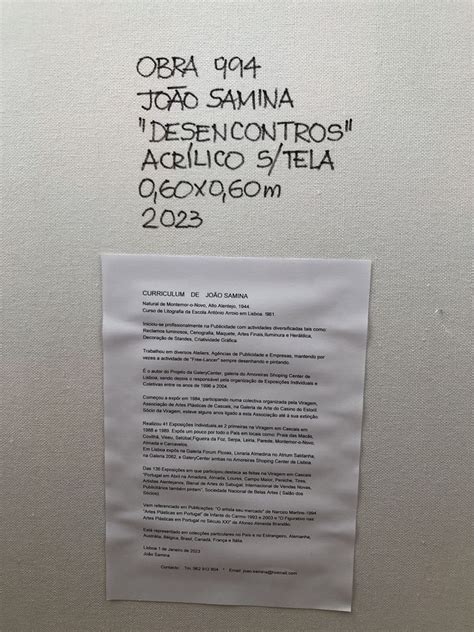 OBRA 994
JOÃO SAMINA
"DESENCONTROS"
ACRÍLICO S/TELA
0,60X0,60m
2023
CURRICULUM DE JOÃO SAMINA
Natural de Montemor-o-Novo, Alto Alentejo, 1944
Curso de Litografia da Escola António Arroio em Lisboa. 1961.
Iniciou-se profissionalmente na Publicidade com actividades diversificadas tais como:
Reclamos luminosos, Cenografia, Maquete, Artes Finais, Iluminura e Heráldica,
Decoração de Standes, Criatividade Gráfica
Trabalhou em diversos Ateliers, Agências de Publicidade e Empresas, mantendo por
vezes a actividade de "Free-Lancer" sempre desenhando e pintando.
É o autor do Projeto da GaleryCenter, galeria do Amoreiras Shoping Center de
Lisboa, sendo depois o responsável pela organização de Exposições Individuais e
Coletivas entre os anos de 1996 a 2004.
Começou a expôr em 1984, participando numa colectiva organizada pela Viragem,
Associação de Artes Plásticas de Cascais, na Galeria de Arte do Casino do Estoril.
Sócio da Viragem, esteve alguns anos ligado a esta Associação até á sua extinção.
Realizou 41 Exposições Individuais,as 2 primeiras na Viragem em Cascais em
1988 e 1989. Expôs um pouco por todo o País em locais como: Praia das Maçãs,
Covilhã, Viseu, Setúbal, Figueira da Foz, Serpa, Leiria, Parede, Montemor-o-Novo,
Almada e Carcavelos.
Em Lisboa expôs na Galeria Forum Picoas, Livraria Almedina no Atrium Saldanha,
na Galeria 2082, a GaleryCenter ambas no Amoreiras Shoping Center de Lisboa
Das 136 Exposições em que participou destaca as feitas na Viragem em Cascais
"Portugal em Abril na Amadora, Almada, Loures, Campo Maior, Peniche, Tires,
Artistas Alentejanos, Bienal de Artes do Sabugal, Internacional de Vendas Novas,
Publicitários também pintam", Sociedade Nacional de Belas Artes ( Salão dos
Sócios)
Vem referenciado em Publicações: "O artista seu mercado" de Narcizo Martins-1994
"Artes Plásticas em Portugal" de Infante do Carmo-1993 e 2003 e "O Figurativo nas
Artes Plásticas em Portugal no Século XXI" de Afonso Almeida Brandão.
Está representado em colecções particulares no País e no Estrangeiro, Alemanha,
Austrália, Bélgica, Brasil, Canadá, França e Itália.
Lisboa 1 de Janeiro de 2023
João Samina
Contacto: Tel. 962 912 904 * Email: joao.samina@hotmail.com